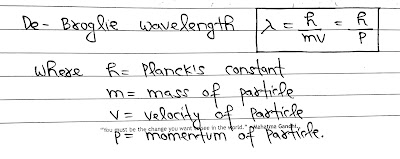 De-Broglie wavelength λ = h/mv = h/p
where h = Planck's constant
m = mass of particle
v = velocity of particle
"You must be the change you want to see in the world." - Mahatma Gandhi
p = momentum of particle.